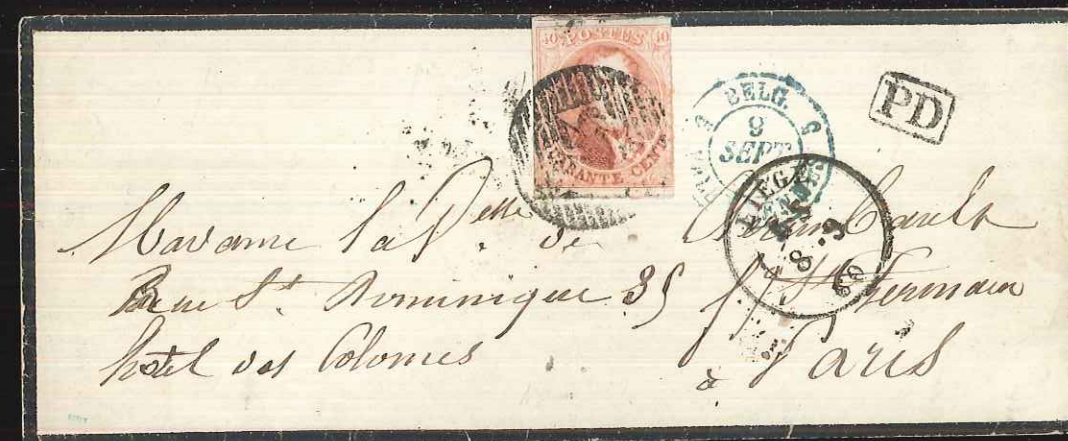 10 POSTES 10
QUARANTE CENT.
BELG.
9
SEPT
PD
LIEGE
8 9
60
Madame la Vtesse de
Rue St Dominique 35 fg St Germain
hotel des Colonies à Paris